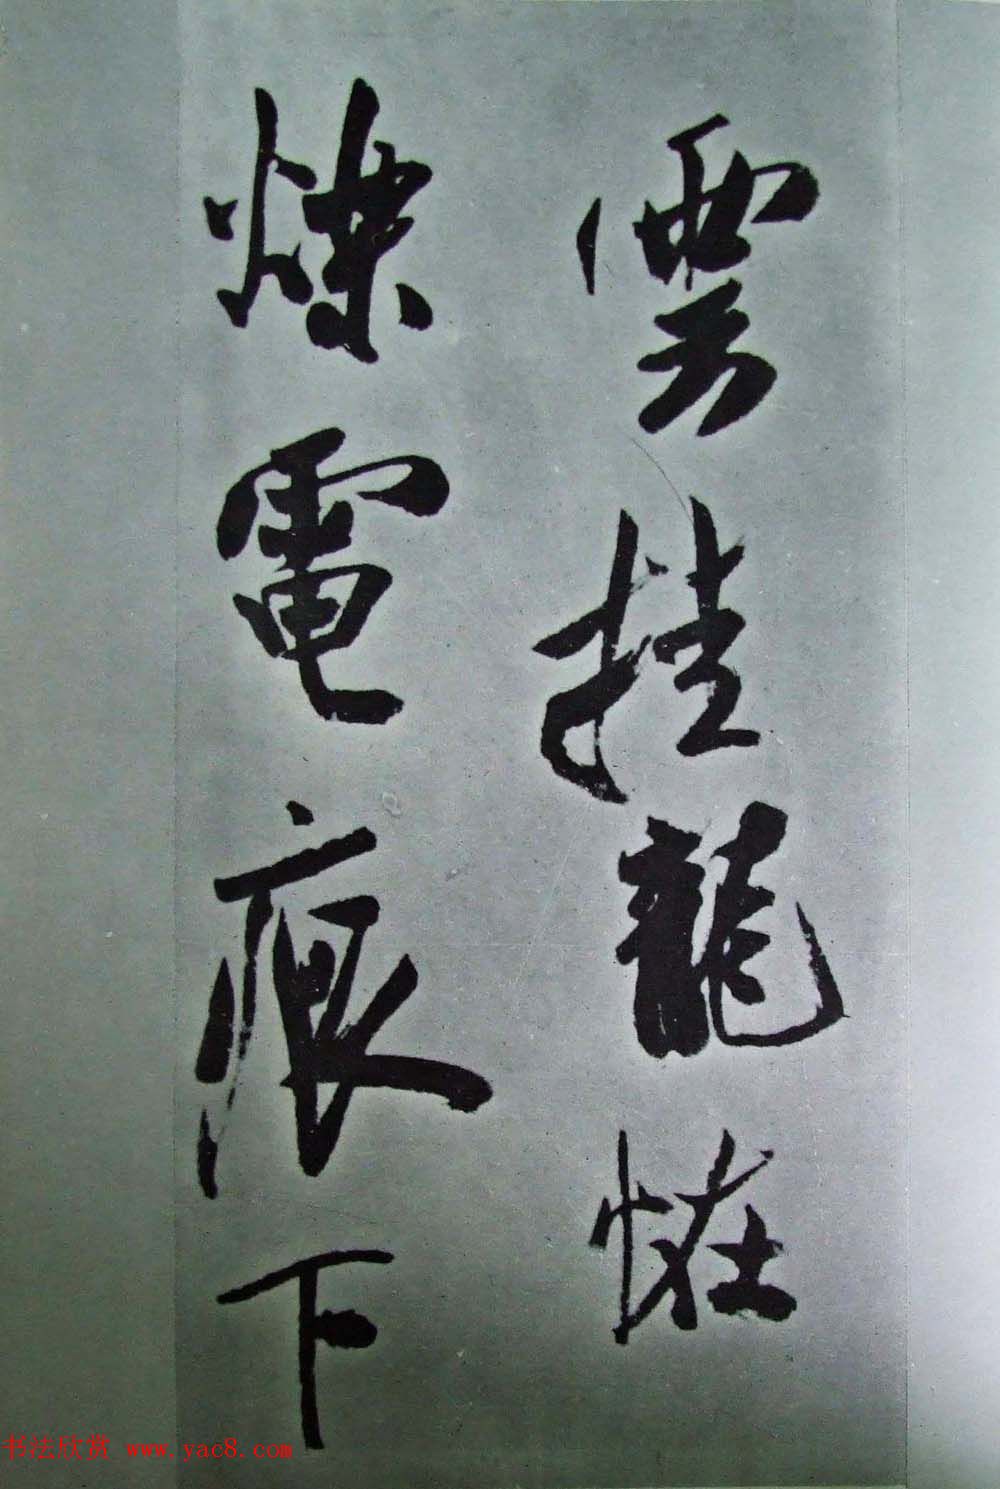 雲挂龍恠
爍電痕下
书法欣赏 www.yac8.com